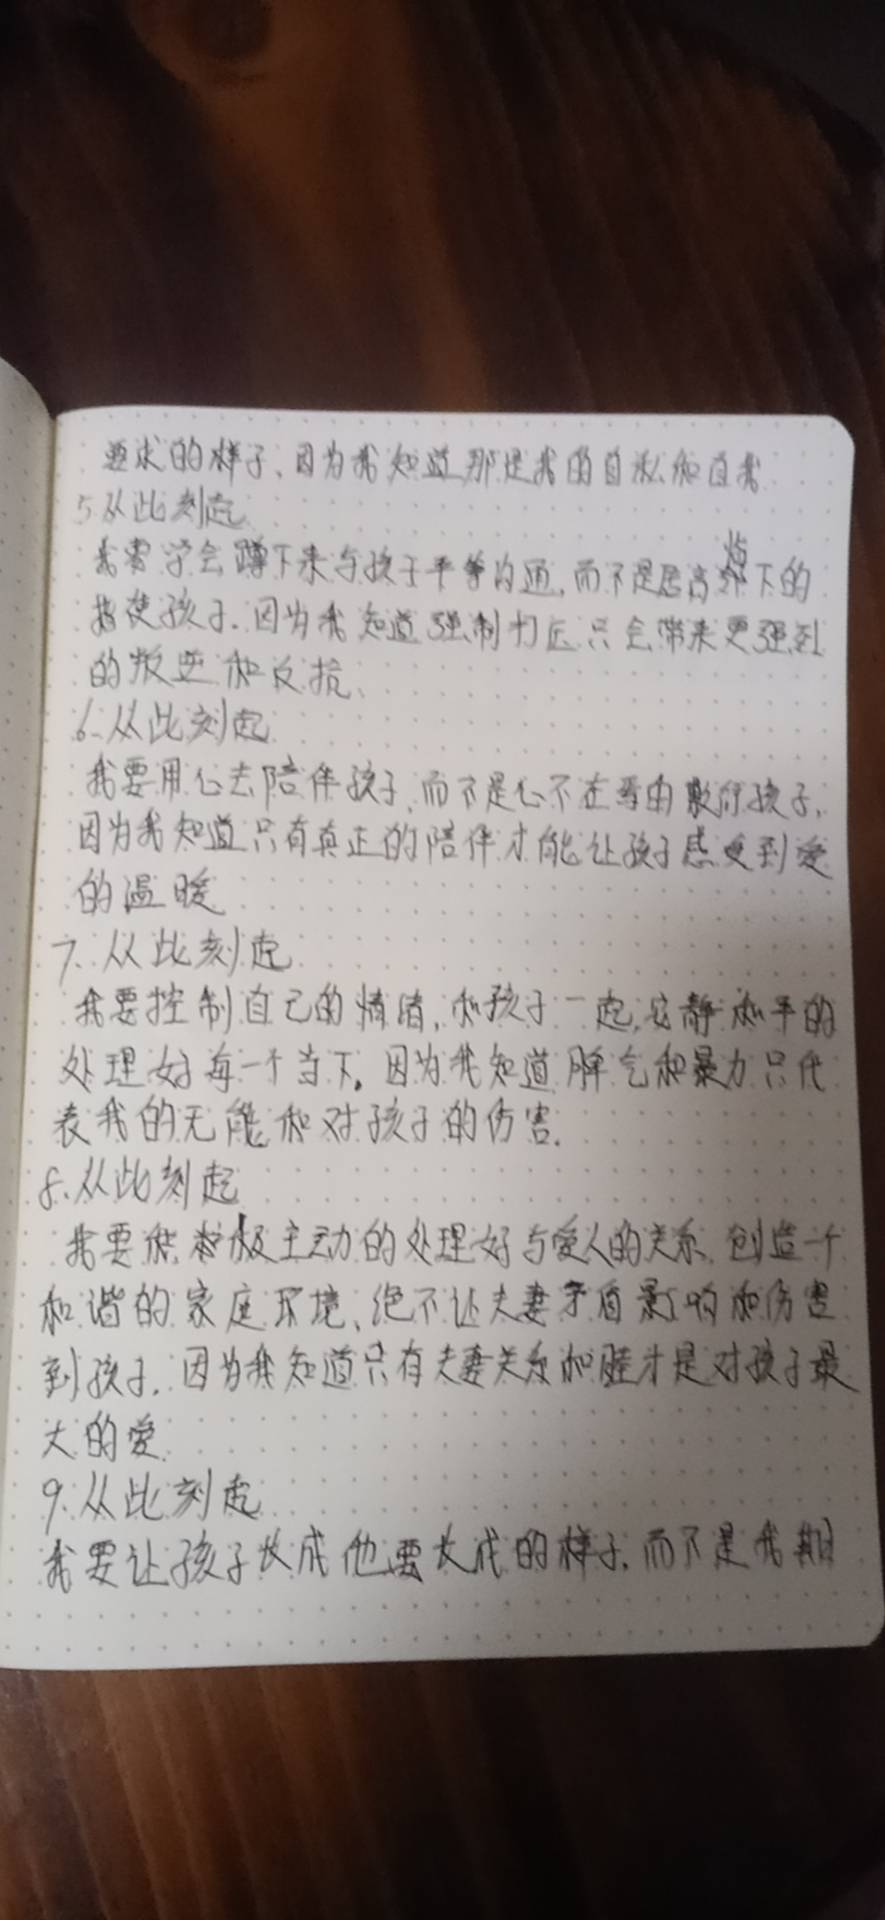 要求的样子、因为我知道那是我的自私和自我
5从此刻起
我需学会蹲下来与孩子平等沟通,而不是居高临下的
指使孩子.因为我知道强制打压只会带来更强烈
的叛逆和反抗、
6、从此刻起
我要用心去陪伴孩子,而不是心不在焉由敷衍孩子,
因为我知道只有真正的陪伴才能让孩子感受到爱
的温暖
7.从此刻起
我要控制自己的情绪,和孩子一起,安静和平的
处理好每一个当下。因为我知道脾气和暴力只代
表我的无能和对孩子的伤害.
8、从此刻起
我要积极主动的处理好与爱人的关系、创造一个
和谐的家庭环境、绝不让夫妻矛盾影响和伤害
到孩子.因为我知道只有夫妻关系和睦才是对孩子最
大的爱
9.从此刻起
我要让孩子长成他要长成的样子.而不是我期